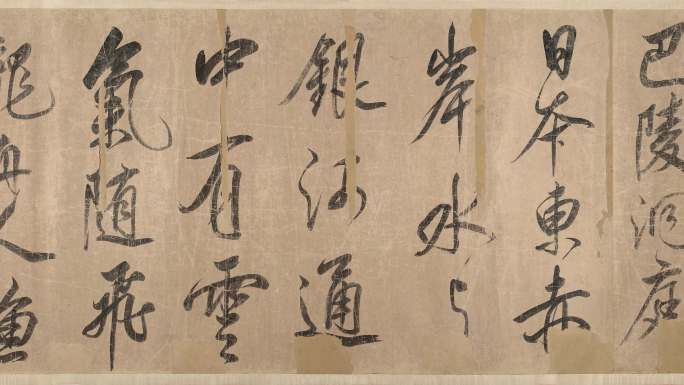 巴陵洞庭
日本東赤
岸水与
銀河通
中有雲
氣随飛
龍舟人漁